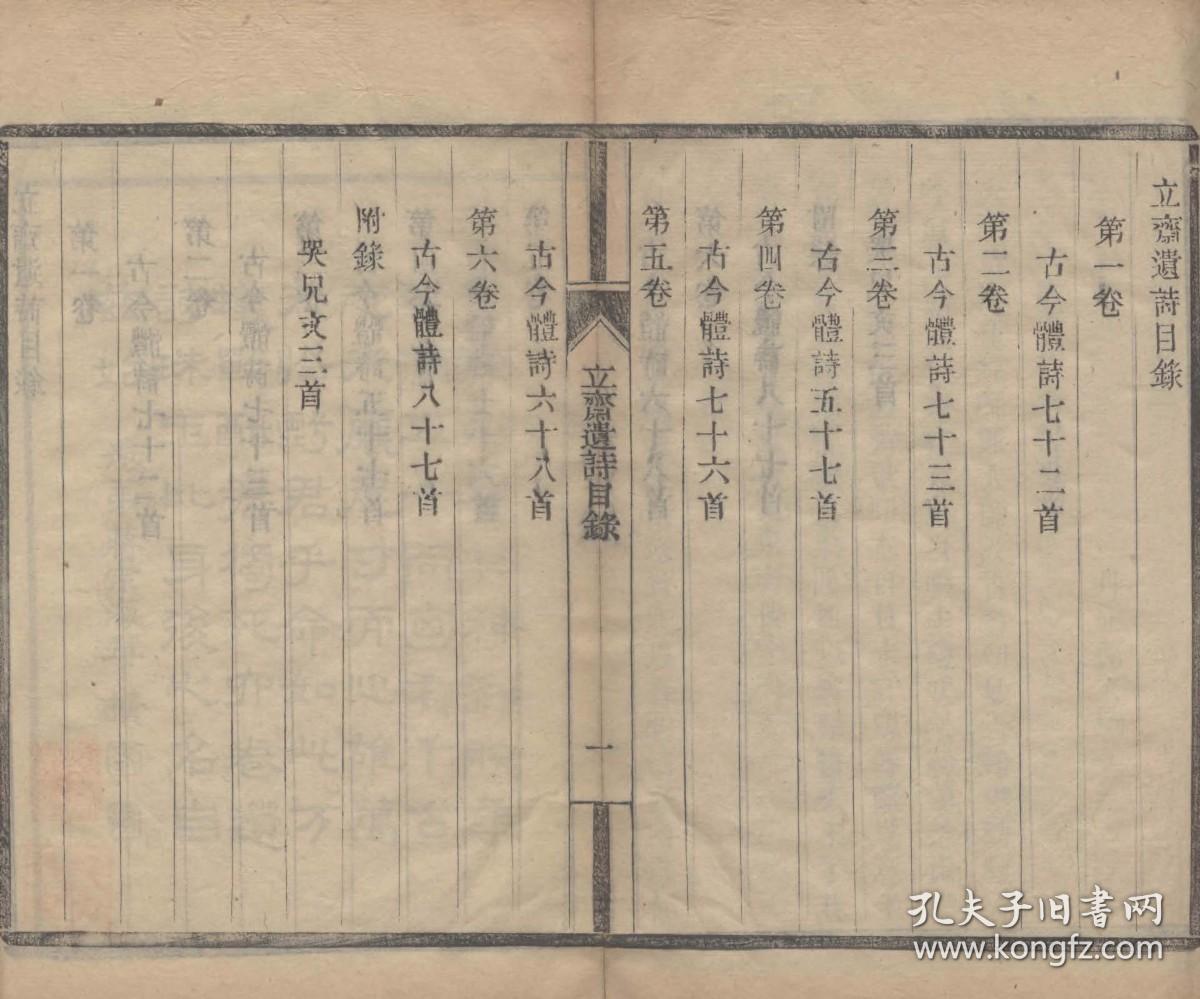 立齋遺詩目錄
第一卷
古今體詩七十二首
第二卷
古今體詩七十三首
第三卷
古今體詩五十七首
第四卷
古今體詩七十六首
第五卷
立齋遺詩目錄
一
古今體詩六十八首
第六卷
古今體詩八十七首
附錄
哭兄文三首
孔夫子旧书网
www.kongfz.com